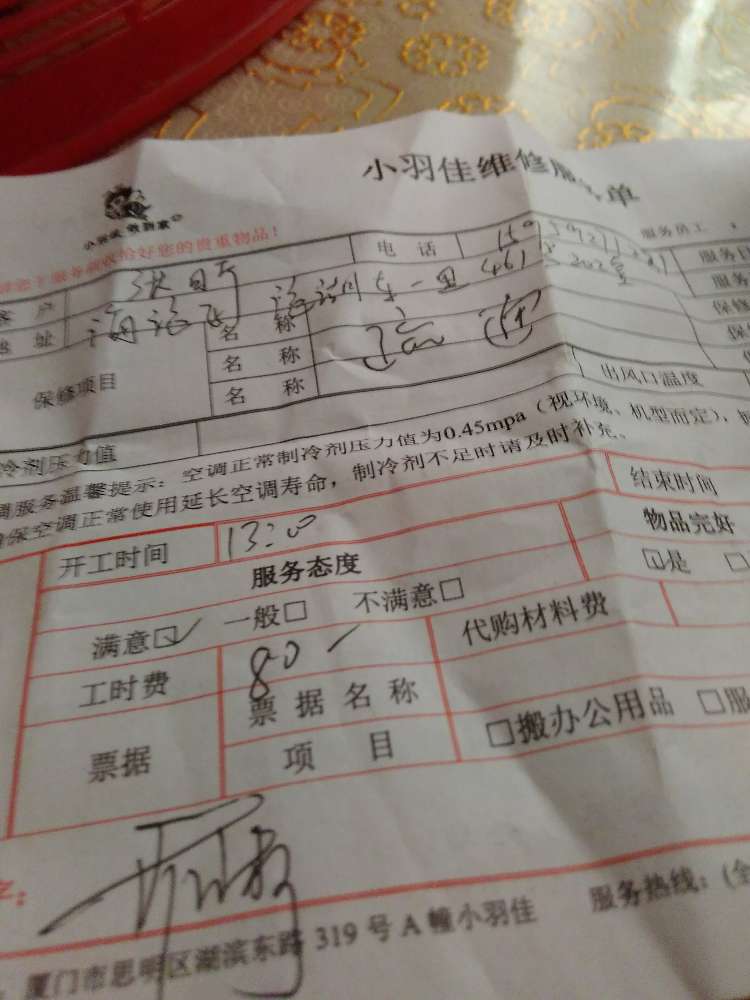 小羽佳维修服务单
小羽佳 做到家
服务员工
服务前收恰好您的贵重物品！
客户 电话 服务日
地址 东一里 461 202室 服务
保修项目 名称 保修
名称
名称 出风口温度
冷剂压力值
调服务温馨提示：空调正常制冷剂压力值为0.45mpa（视环境、机型而定），
保空调正常使用延长空调寿命，制冷剂不足时请及时补充。
开工时间 13:00 结束时间
服务态度 物品完好
满意☑ 一般□ 不满意□ ☑是 □
工时费 80 代购材料费
票据 票据名称
项目 □搬办公用品 □服
厦门市思明区湖滨东路 319 号 A 幢小羽佳 服务热线：(全